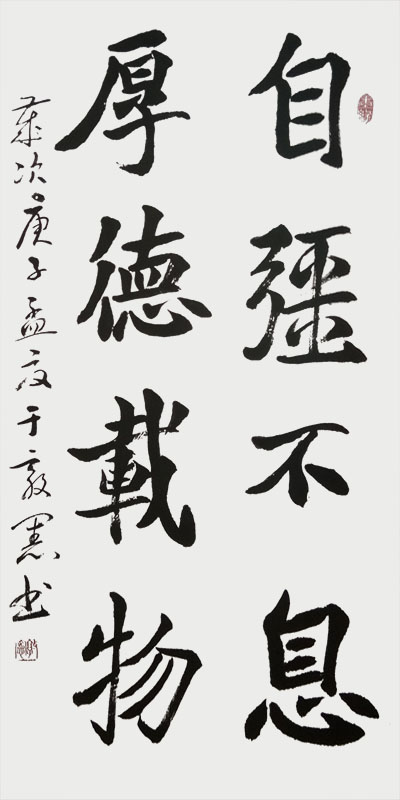 自彊不息
厚德載物
歲次庚子孟夏于敦憲书